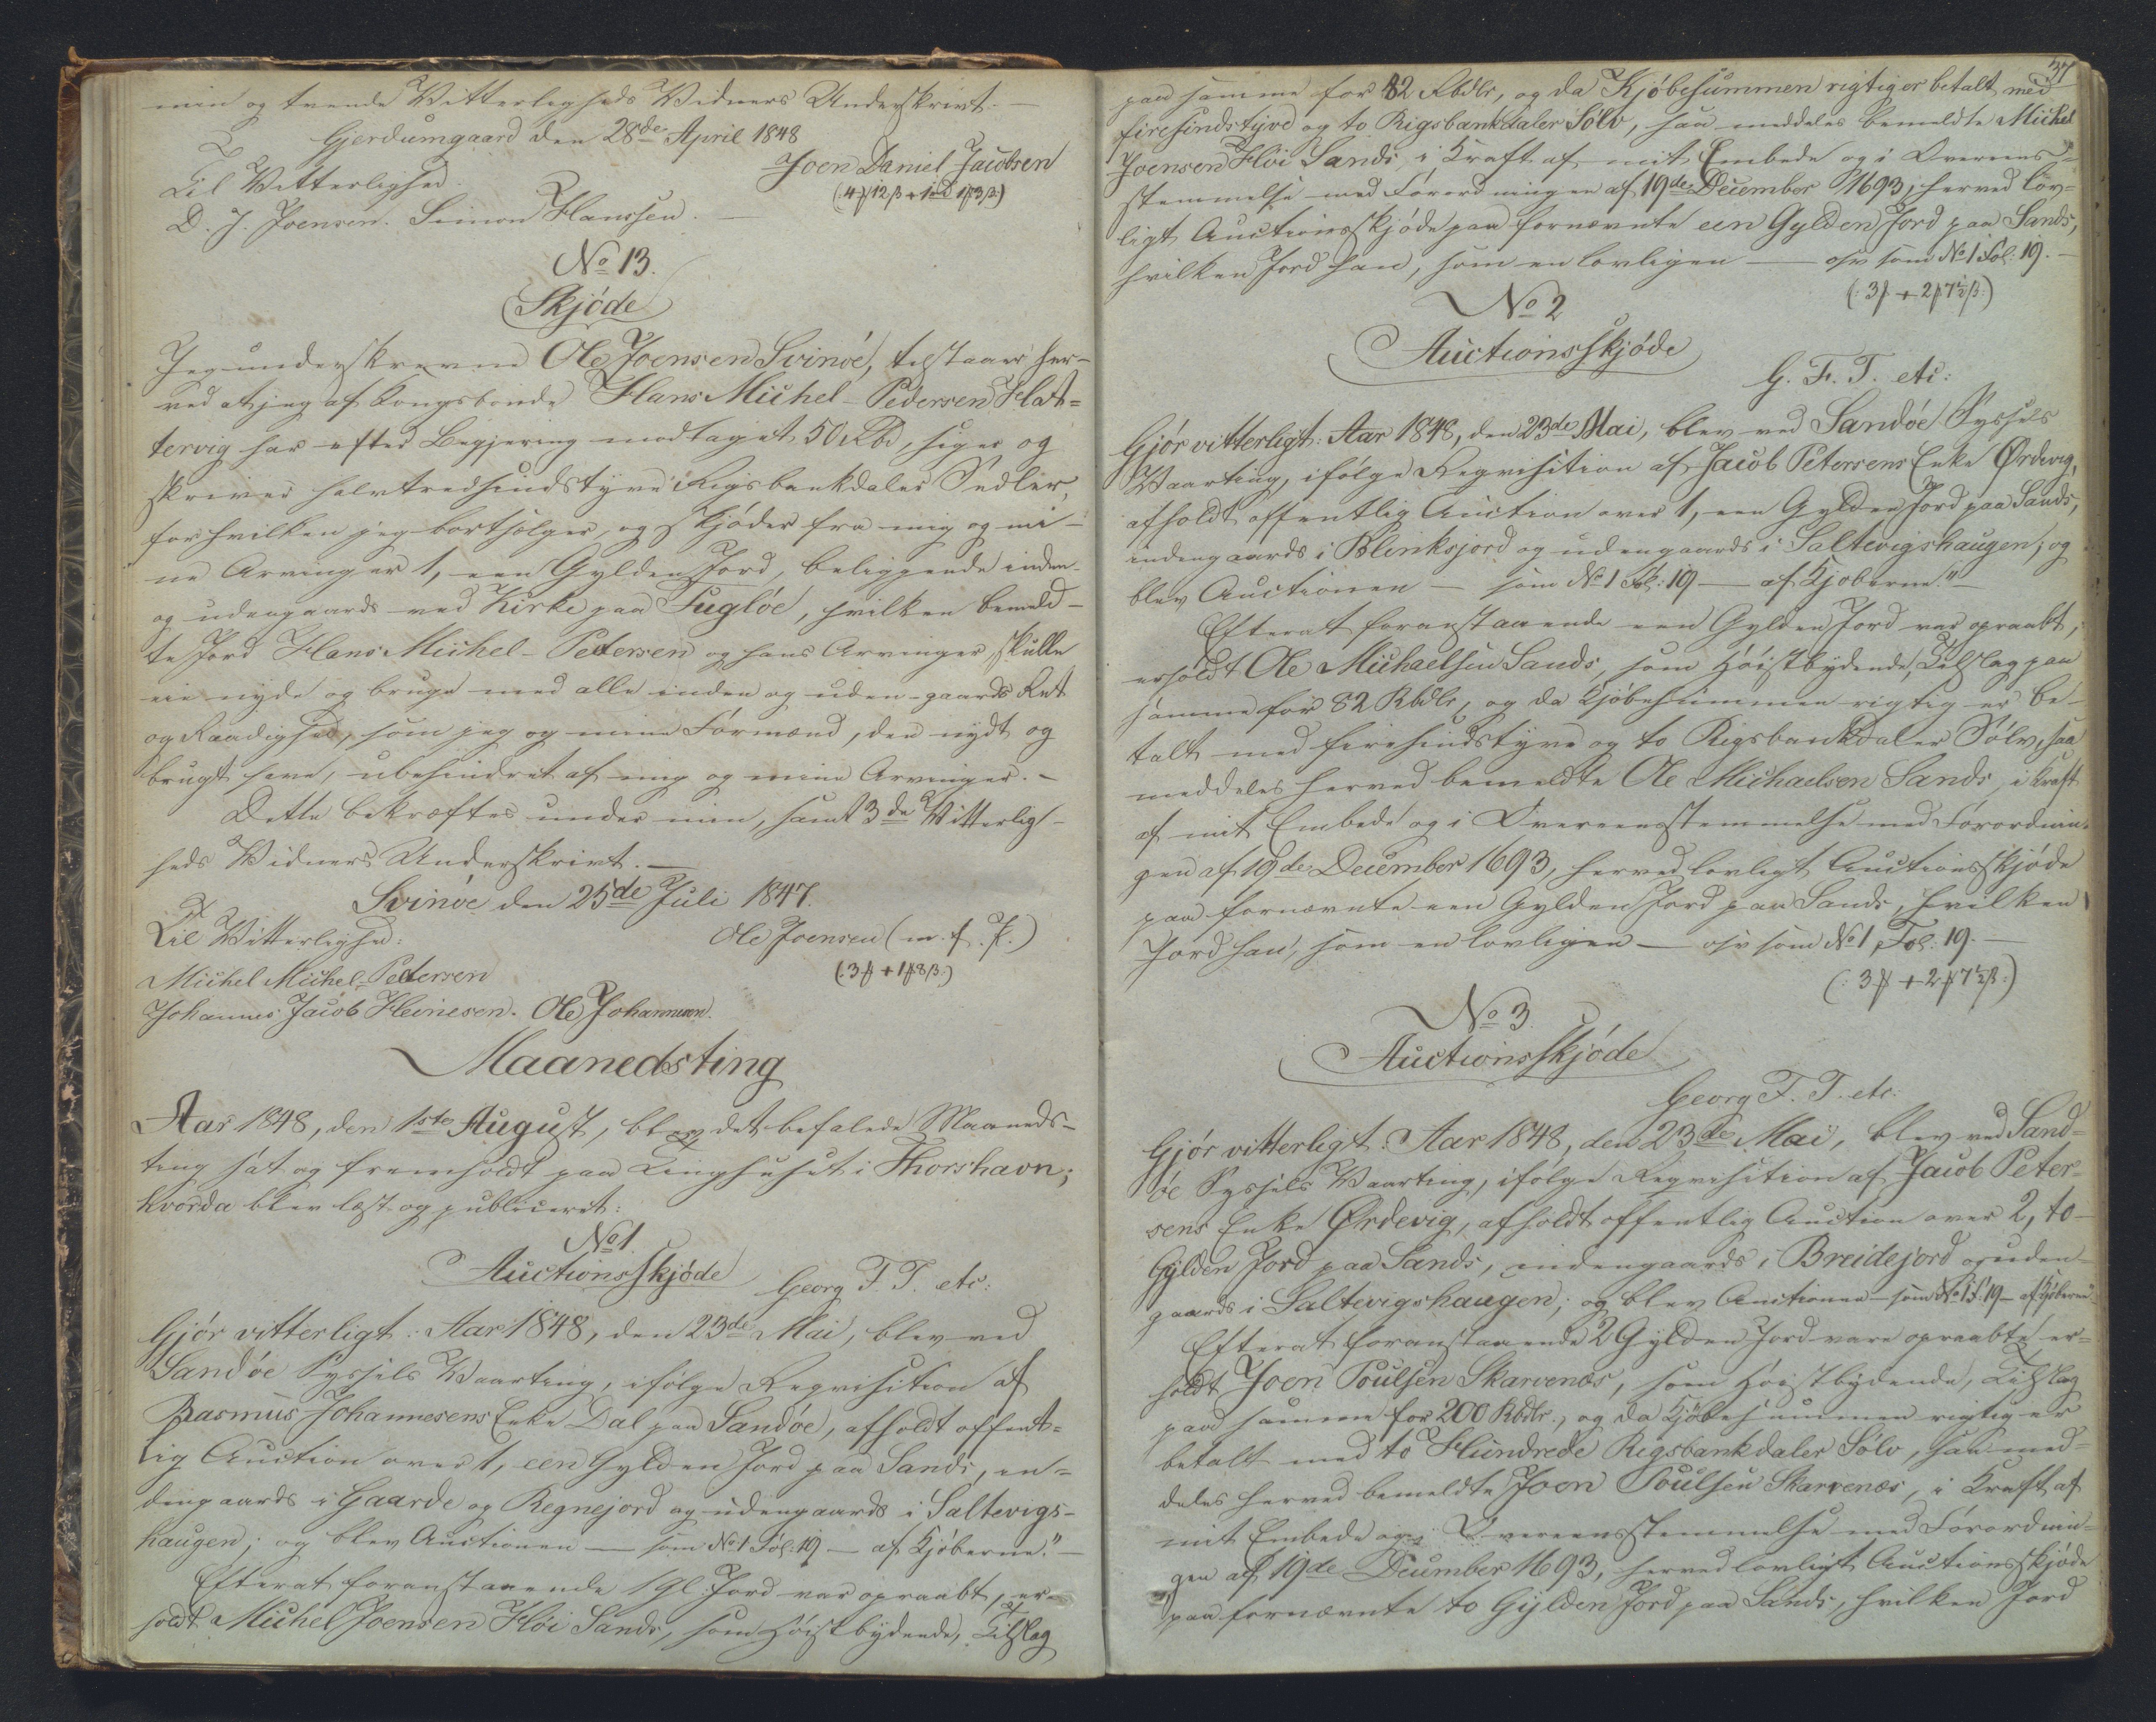 min og tvende Vitterligheds Vidners Underskrivt. —
Gjerdumgaard den 28de April 1848
Til Vitterlighed. Joen Daniel Jacobsen
D. J. Joensen. Simon Hanssen. —
No 13.
Skjøde
Jeg underskrevne Ole Joensen Svinøe, tilstaaer her-
ved at jeg af Kongsbonde Hans Michel-Pedersen Hlat=
tervig har efter Begjering modtaget 50 Rbd, siger og
skriver halvtredsindstyve Rigsbankdaler Sedler,
for hvilken jeg bortsælger, og skjøder fra mig og mi-
ne Arvinger 1, een Gylden Jord, beliggende inden-
og udengaards ved Kirke paa Fugløe, hvilken bemeld-
te Jord Hans Michel-Pedersen og hans Arvinger skulle
eie nyde og bruge med alle inden og uden-gaards Ret
og Raadighed, som jeg og mine Formænd, den nydt og
brugt have, ubehindret af mig og mine Arvinger. -
Dette bekræftes under min, samt 3de Vitterlig-
heds Vidners Underskrivt. —
Svinøe den 25de Juli 1847.
Til Vitterlighed: Ole Joensen (m. f. P.)
Michel Michel-Pedersen (3 ꝑ + 1 ꝑ 8 ß.)
Johannes Jacob Heinesen. Ole Johannesen.
Maanedsting
Aar 1848, den 1ste August, blev det befalede Maaneds-
ting sat og fremholdt paa Tinghuset i Thorshavn;
hvorda blev læst og publiceret:
No 1.
Auctionsskjøde Georg F. T. etc:
Gjør vitterligt: Aar 1848, den 23de Mai, blev ved
Sandøe Syssels Vaarting, ifølge Reqvisition af
Rasmus Johannesens Enke Dal paa Sandøe, afholdt offent=
lig Auction over 1, een Gylden Jord paa Sands, in=
dengaards i Gaarde og Regnejord og udengaards i Saltevigs-
haugen; og blev Auctionen — som No 1 Fol: 19 — af Kjøberne." —
Efterat foranstaaende 1 gl: Jord var opraabt, er-
holdt Michel Joensen Høi Sands, som høistbydende, Tilslag
37
paa samme for 82 Rbdlr, og da Kjøbesummen rigtig er betalt med
firesindstyve og to Rigsbankdaler Sølv, saa meddeles bemeldte Michel
Joensen Høi Sands, i Kraft af mit Embede og i Overeens-
stemmelse med Forordningen af 19de December 1693, herved lov=
ligt Auctionsskjøde paa fornævnte een Gylden Jord paa Sands,
hvilken Jord han, som en lovligen — osv som No 1 Fol: 19. —
(: 3 ꝑ + 2 ꝑ 7½ ß:)
No 2
Auctionsskjøde
G. F. T. etc:
Gjør vitterligt: Aar 1848, den 23de Mai, blev ved Sandøe Syssels
Vaarting, ifølge Reqvisition af Jacob Petersens Enke Ørdevig,
afholdt offentlig Auction over 1, een Gylden Jord paa Sands,
indengaards i Blinksjord og udengaards i Saltevigshaugen; og
blev Auctionen — som No 1 Fol: 19 — af Kjøberne." —
Efterat foranstaaende een Gylden Jord var opraabt,
erholdt Ole Michaelsen Sands, som høistbydende, Tilslag paa
samme for 82 Rbdlr, og da Kjøbesummen rigtig er be-
talt med firesindstyve og to Rigsbankdaler Sølv, saa
meddeles herved bemeldte Ole Michaelsen Sands, i Kraft
af mit Embede og i Overeensstemmelse med Forordnin-
gen af 19de December 1693, herved lovligt Auctionsskjøde
paa fornævnte een Gylden Jord paa Sands, hvilken
Jord han, som en lovligen — osv som No 1 Fol: 19. —
(: 3 ꝑ + 2 ꝑ 7½ ß:)
No 3.
Auctionsskjøde
Georg F. T. etc:
Gjør vitterligt: Aar 1848, den 23de Mai, blev ved Sand=
øe Syssels Vaarting, ifølge Reqvisition af Jacob Peter-
sens Enke Ørdevig, afholdt offentlig Auction over 2, to
Gylden Jord paa Sands, indengaards i Breidejord og uden-
gaards i Saltevigshaugen; og blev Auctionen — som No 1 F. 19 — af Kjøberne"
Efterat foranstaaende 2 Gylden Jord vare opraabte, er-
holdt Joen Poulsen Skarvenæs, som høistbydende, Tilslag
paa samme for 200 Rbdlr., og da Kjøbesummen rigtig er
betalt med to Hundrede Rigsbankdaler Sølv, saa med=
deles herved bemeldte Joen Poulsen Skarvenæs, i Kraft af
mit Embede og i Overeensstemmelse med Forordnin-
gen af 19de December 1693, herved lovligt Auctionsskjøde
paa fornævnte to Gylden Jord paa Sands, hvilken Jord